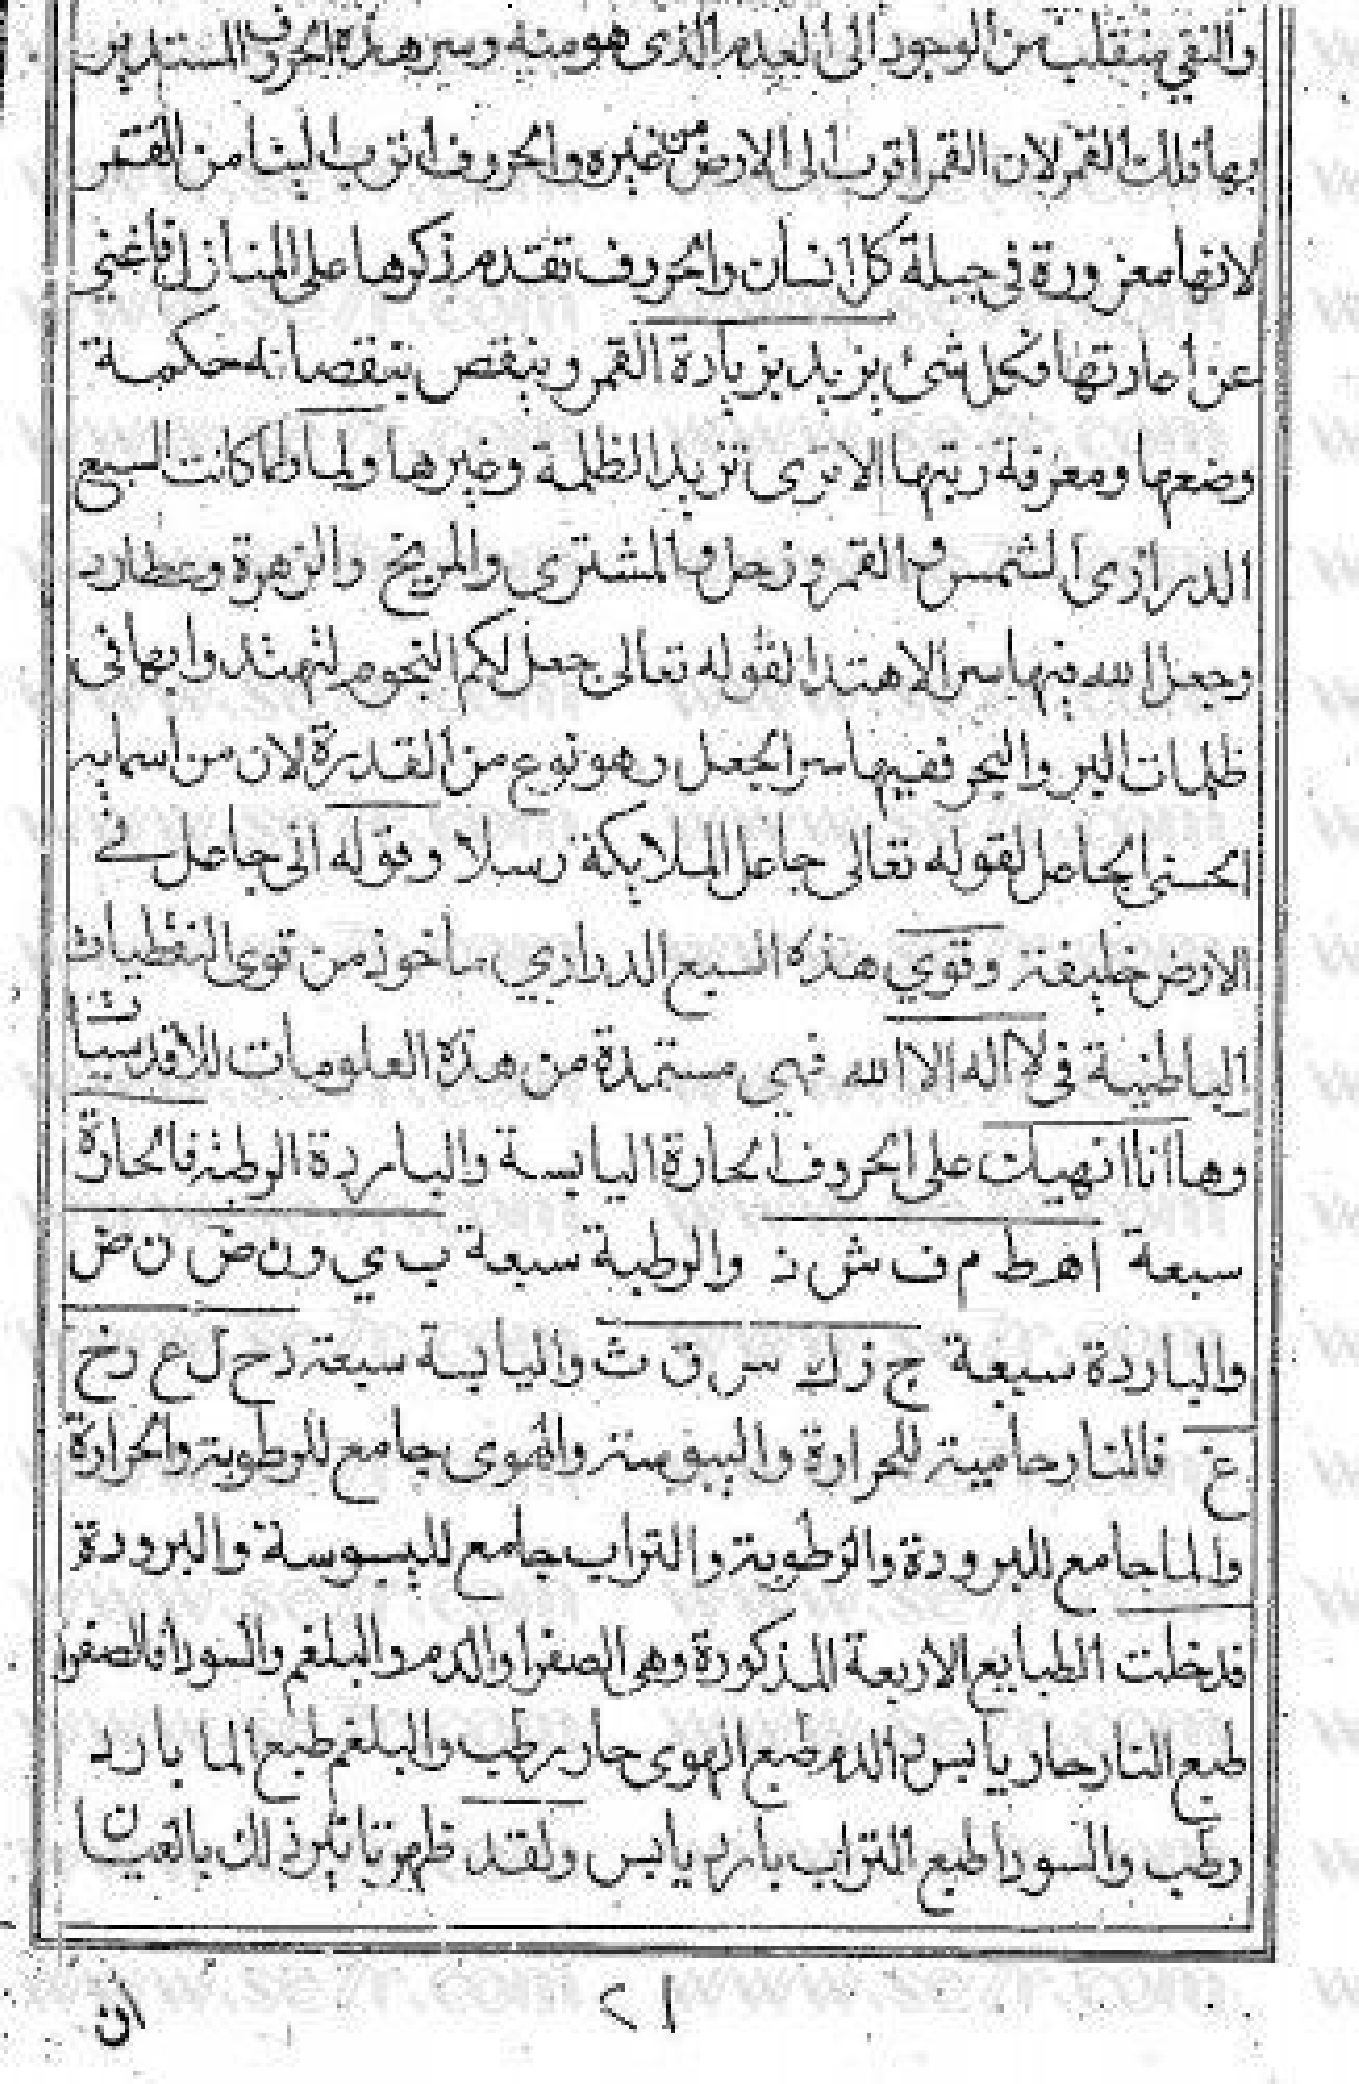 والنفي منقلب من الوجود الى العدم الذى هو منه وسر هذه الحروف المستدير
بها فلك القمر لان القمر اقرب الى الارض من غيره والحروف اقرب الينا من القمر
لانها مغرورة فى جبلة كل انسان والحروف تقدم ذكرها على المنازل فاغنى
عن اعادتها فكل شئ يزيد بزيادة القمر وينقص بنقصانه حكمة
وضعها ومعرفة رتبها الا ترى تزيد الظلمة وغيرها ولما كانت السبع
الدرارى الشمس والقمر وزحل والمشترى والمريخ والزهرة وعطارد
وجعل الله فيها سر الاهتدا لقوله تعالى جعل لكم النجوم لتهتدوا بها فى
ظلمات البر والبحر ففيها سر الجعل وهو نوع من القدرة لان من اسمايه
الحسنى الجاعل لقوله تعالى جاعل الملايكة رسلا وقوله انى جاعل في
الارض خليفة وقوي هذه السبع الدراري ماخوذ من قوى النقطيات
الباطنية فى لا اله الا الله فهى مستمدة من هذه العلومات
وها انا انهيك على الحروف الحارة اليابسة والباردة الرطبة فالحارة
سبعة ا ه ط م ف ش ذ والرطبة سبعة ب ي و ن ض ن ض
والباردة سبعة ج ز ك س ق ث واليابسة سبعة د ح ل ع ر خ
غ فالنار حامية للحرارة واليبوسة والهوى جامع للرطوبة والحرارة
والما جامع للبرودة والرطوبة والتراب جامع لليبوسة والبرودة
فدخلت الطبايع الاربعة المذكورة وهى الصفرا والدم والبلغم والسودا فالصفرا
طبع النار حار يابس والدم طبع الهوى حار رطب والبلغم طبع الما بارد
رطب والسودا طبع التراب بارد يابس ولقد ظهر تاثير ذلك بالعيان
٢١
ان
www.se7r.com